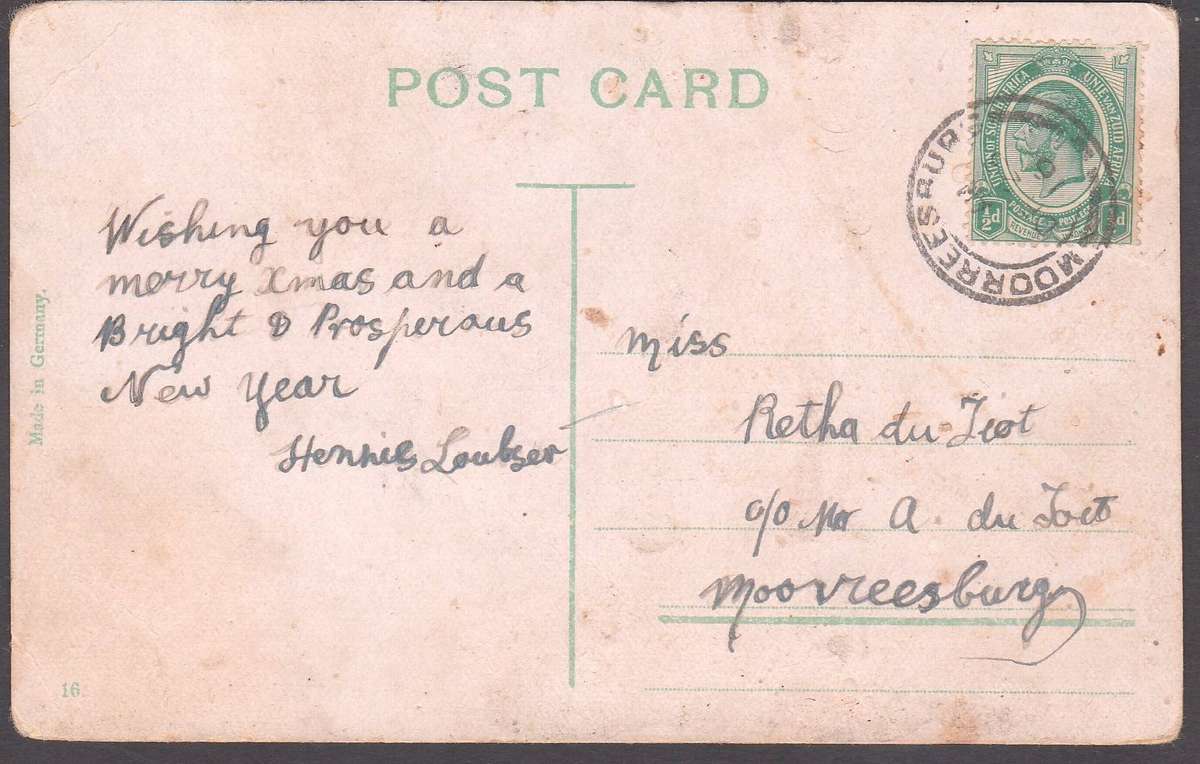 POST CARD
UNION OF SOUTH AFRICA
UNIE VAN ZUID AFRIKA
½d
½d
MOORREESBURG
Wishing you a
merry Xmas and a
Bright & Prosperous
New Year
Hennie Loubser
Miss
Retha du Toit
c/o Mr A. du Toit
Moorreesburg
Made in Germany.
16.